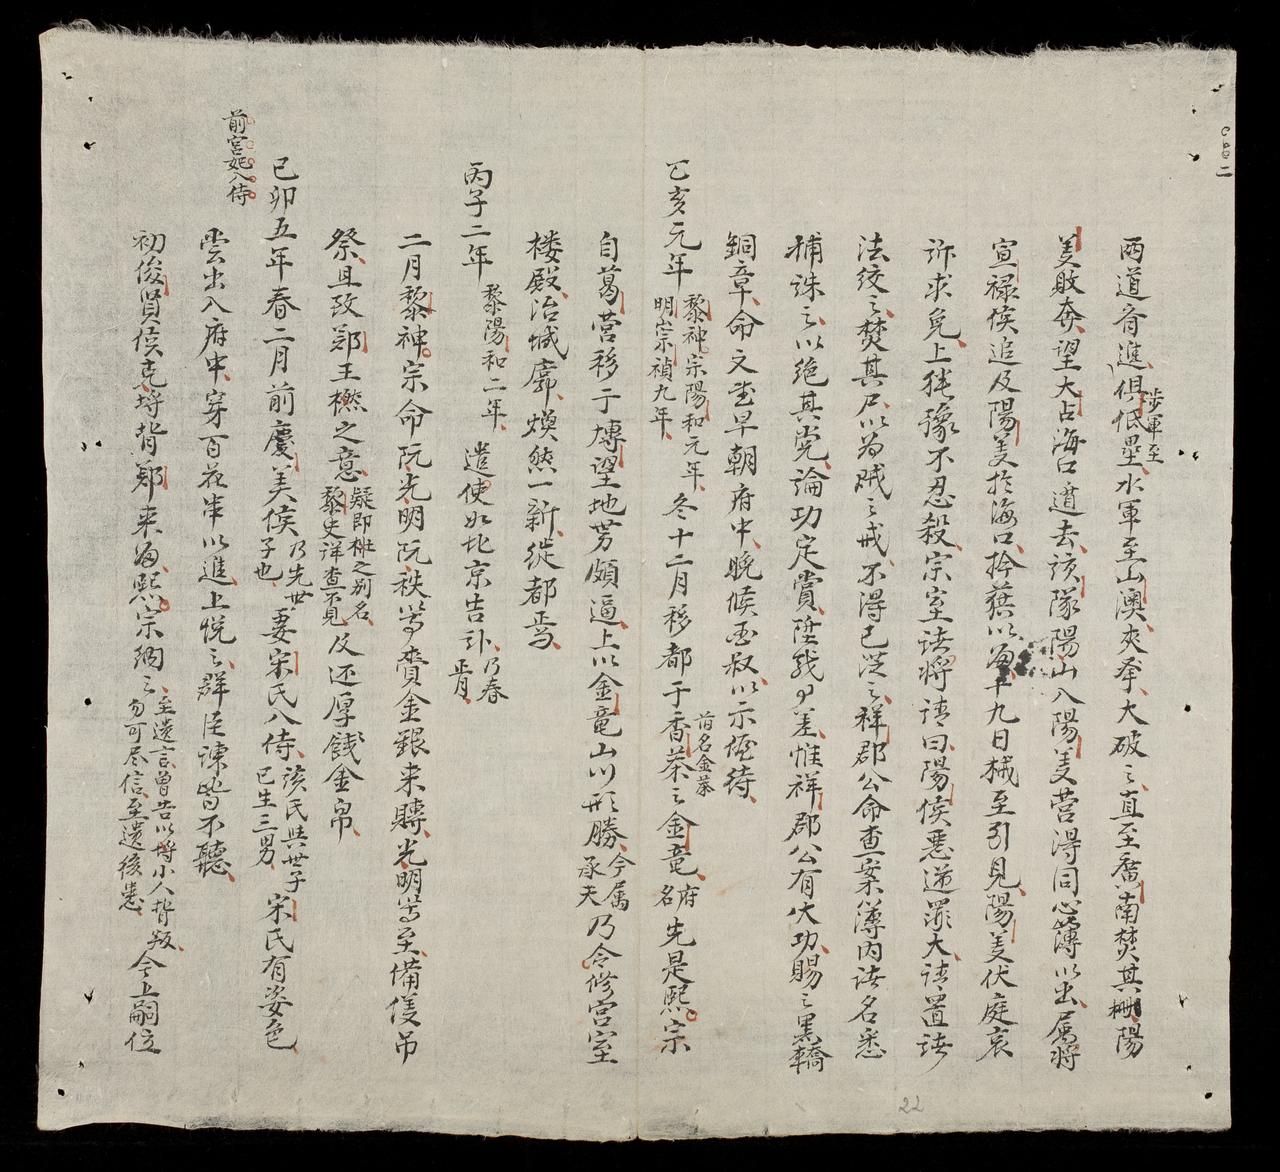 兩道齊進俱低壘水軍至山澳夾攻大破之直至廣南焚其柵陽
步軍至
美敗奔望大占海口遁去該隊陽山入陽美營得同心簿以出属將
宣禄侯追及陽美於海口擒獲以歸十九日械至引見陽美伏庭哀
訴求免上猶豫不忍殺宗室諸將請曰陽侯惡逆罪大請置諸
法絞之焚其尸以為賊之戒不得已從之祥郡公命查案簿內諸名悉
捕誅之以絶其党論功定賞陞貶有差惟祥郡公有大功賜之黑轎
銅章命文武早朝府中晚候函叔以示優待
乙亥元年
黎神宗陽和元年
明崇禎九年
冬十二月移都于香茶之金竜
前名金茶
府名
先是熙宗
自葛営移于博望地势頗逼上以金竜山川形勝
今属
承天
乃令修宫室
楼殿治城廓煥然一新徙都焉
丙子二年
黎陽和二年
遣使如北京告訃
乃春
正月
二月黎神宗命阮光明阮秩等賫金銀来賻光明等至備僾吊
祭且致鄭王橪之意
疑即梉之别名
黎史详查不見
及还厚餞金帛
己卯五年春二月前慶美侯
乃先世
子也
妻宋氏入侍
該氏與世子
已生三男
宋氏有姿色
前宫妃入侍
雲出入府中穿百花串以進上悦之群臣諫皆不聽
初俊賢侯克埒背鄭来歸熙宗納之
至遗言曾告以埒小人背叛
勿可尽信至遺後患
今上嗣位
22